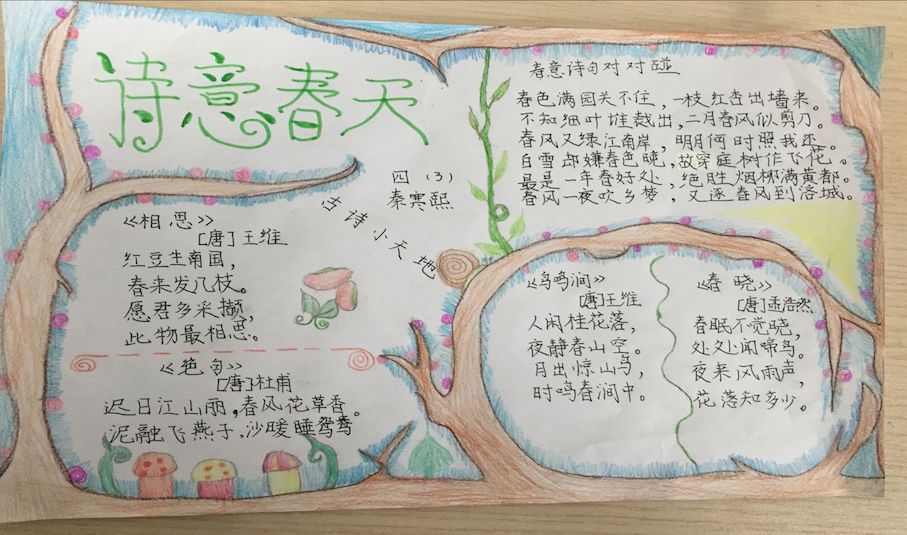 诗意春天
四（3）
秦寒熙
古诗小天地
《相思》
[唐]王维
红豆生南国，
春来发几枝。
愿君多采撷，
此物最相思。
《绝句》
[唐]杜甫
迟日江山丽，春风花草香。
泥融飞燕子，沙暖睡鸳鸯
春意诗句对对碰
春色满园关不住，一枝红杏出墙来。
不知细叶谁裁出，二月春风似剪刀。
春风又绿江南岸，明月何时照我还。
白雪却嫌春色晚，故穿庭树作飞花。
最是一年春好处，绝胜烟柳满黄都。
春风一夜吹乡梦，又逐春风到洛城。
《鸟鸣涧》
[唐]王维
人闲桂花落，
夜静春山空。
月出惊山鸟，
时鸣春涧中。
《春晓》
[唐]孟浩然
春眠不觉晓，
处处闻啼鸟。
夜来风雨声，
花落知多少。